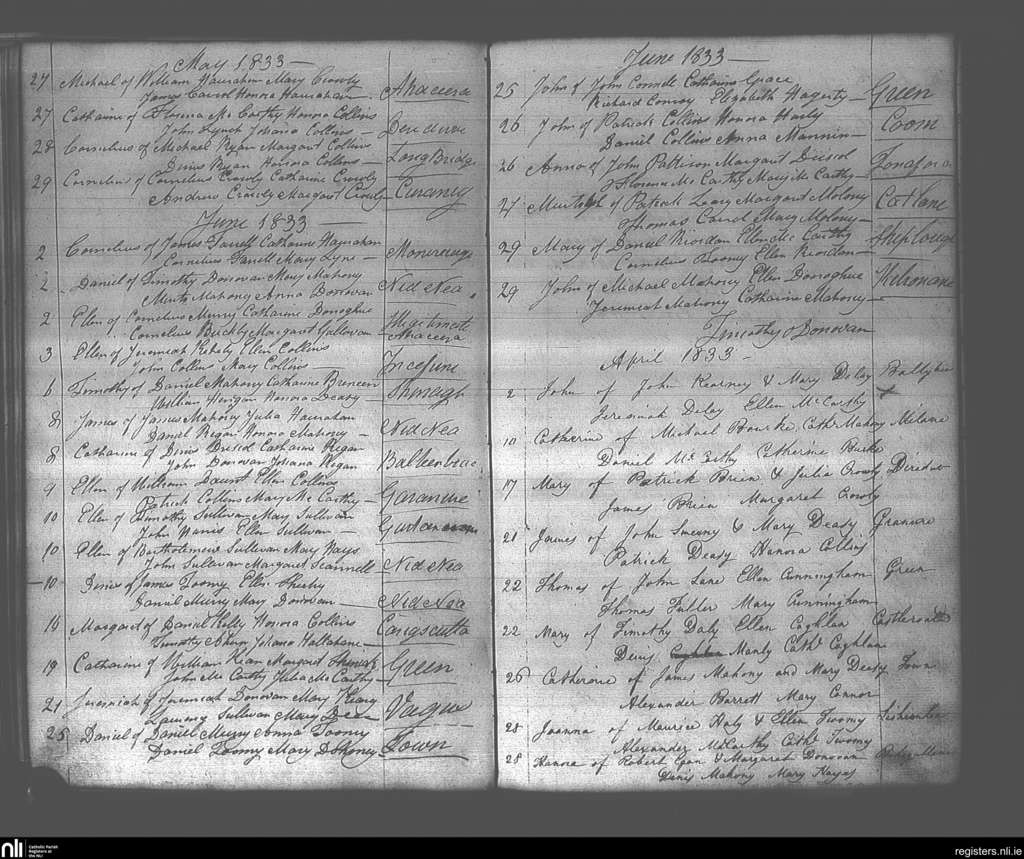 May 1833
27 Michael of William Hanrahan Mary Crowly
James Carrol Honora Hanrahan Ahaceera
27 Catharine of Florence Mc Carthy Honora Collins
John Lynch Johana Collins
28 Cornelius of Michael Ryan Margaret Collins
Denis Ryan Honora Collins Long Bridge
29 Cornelius of Cornelius Crowly Catharine Crowly
Andrew Crowly Margaret Crowly
June 1833
2 Cornelius of James Farrell Catharine Hanrahan
Cornelius Farrell Mary Lyne
2 Daniel of Timothy Donovan Mary Mahony
Murto Mahony Anna Donovan Nid Nea
2 Ellen of Cornelius Murry Catharine Donoghue Illegitimate
Cornelius Buckly Margaret Sullivan Ahaceera
3 Ellen of Jeremiah Ellen Collins
John Collins Mary Collins
6 Timothy of Daniel Mahony Catharine
William Honora Deasy
8 James of James Mahony Julia Hanrahan
Daniel Regan Honora Mahony Nid Nea
8 Catharine of Denis Driscol Catharine Regan
John Donovan Johana Regan
9 Ellen of William Daunt Ellen Collins
Patrick Collins Mary Mc Carthy
10 Ellen of Timothy Sullivan Mary Sullivan
John Ellen Sullivan
10 Ellen of Bartholemew Sullivan Mary Hays
John Sullivan Margaret Scannell Nid Nea
10 Denis of James Toomy Ellen Sheehy
Daniel Murry Mary Donovan Nid Nea
14 Margaret of Daniel Kelly Honora Collins
Timothy Ahern Johana
19 Catharine of William Kean Margaret
John Mc Carthy Julia Mc Carthy Green
21 Jeremiah of Jeremiah Donovan Mary Heary
Sullivan Mary Vague
25 Daniel of Daniel Murry Anna Toomy
Daniel Toomy Mary Dohoney Town
June 1833
25 John of John Connell Catharine Grace
Richard Conroy Elizabeth Hagerty Green
26 John of Patrick Collins Honora Haily
Daniel Collins Anna Mannin Coom
26 Anna of John Pattison Margaret Driscol
Florence Mc Carthy Mary Mc Carthy
27 Murtogh of Patrick Leary Margaret Molony
Thomas Carrol Mary Molony Cot Lane
29 Mary of Daniel Riordan Ellen Mc Carthy
Cornelius Looney Ellen Riordan Shiplough
29 John of Michael Mahony Ellen Donoghue
Jeremiah Mahony Catharine Mahony
Timothy O Donovan
April 1833
2 John of John Kearney & Mary Delay
Jeremiah Delay Ellen McCarthy
10 Catherine of Michael Bourke Cathe Mahony Milane
Daniel Mc Carthy Catherine Burke
17 Mary of Patrick Brien & Julia Crowly
James Brien Margaret Crowly
21 James of John Sweeny & Mary Deasy
Patrick Deasy Hanora Collins
22 Thomas of John Lane Ellen Cunningham Green
Thomas Fuller Mary Cunningham
22 Mary of Timothy Daly Ellen Coghlan
Denis Manly Cathe Coghlan
26 Catherine of James Mahony and Mary Deasy Town
Alexander Barrett Mary Connor
28 Joanna of Maurice Haly & Ellen Twomy
Alexander McCarthy Cathe Twomy
28 Hanora of Robert Egan & Margaret Donovan
Denis Mahony Mary Hayes
nli
Catholic Parish
Registers at
the NLI
registers.nli.ie